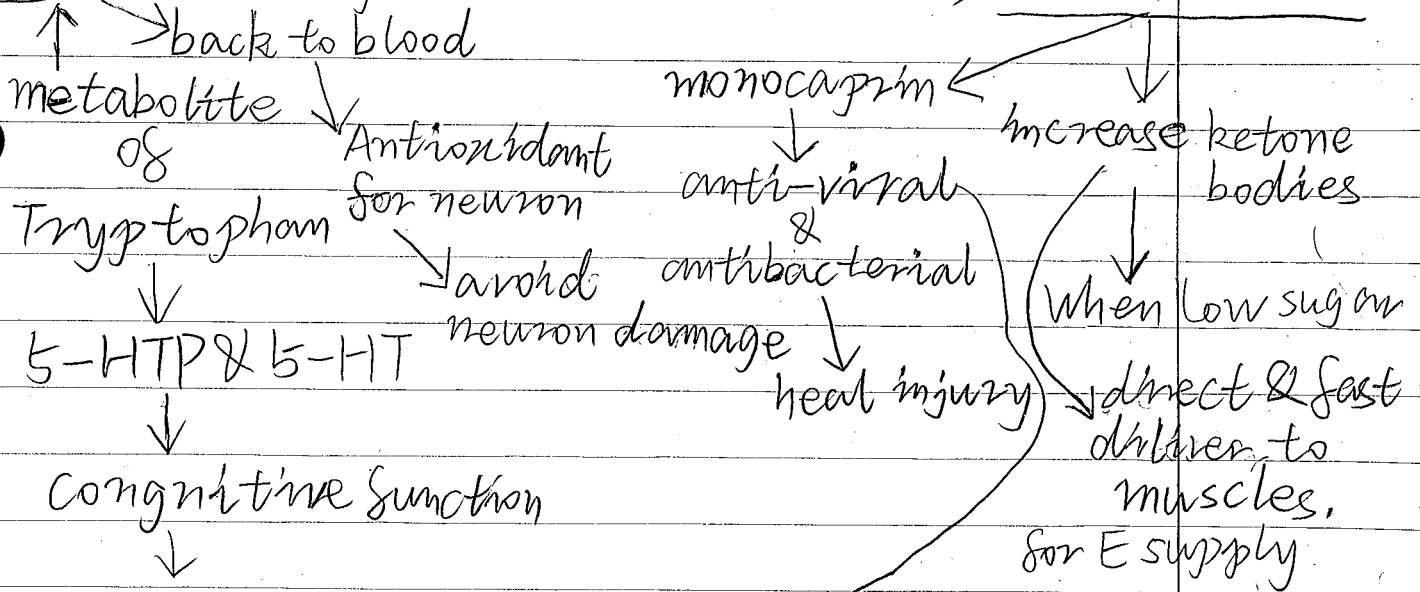 back to blood
metabolite
of
Tryptophan
5-HTP & 5-HT
Congnitive function
Antioxidant
for neuron
avoid
neuron damage
monocaprin
anti-viral
&
antibacterial
heal injury
increase ketone
bodies
When low sugar
direct & fast
diliver to
muscles,
for E supply